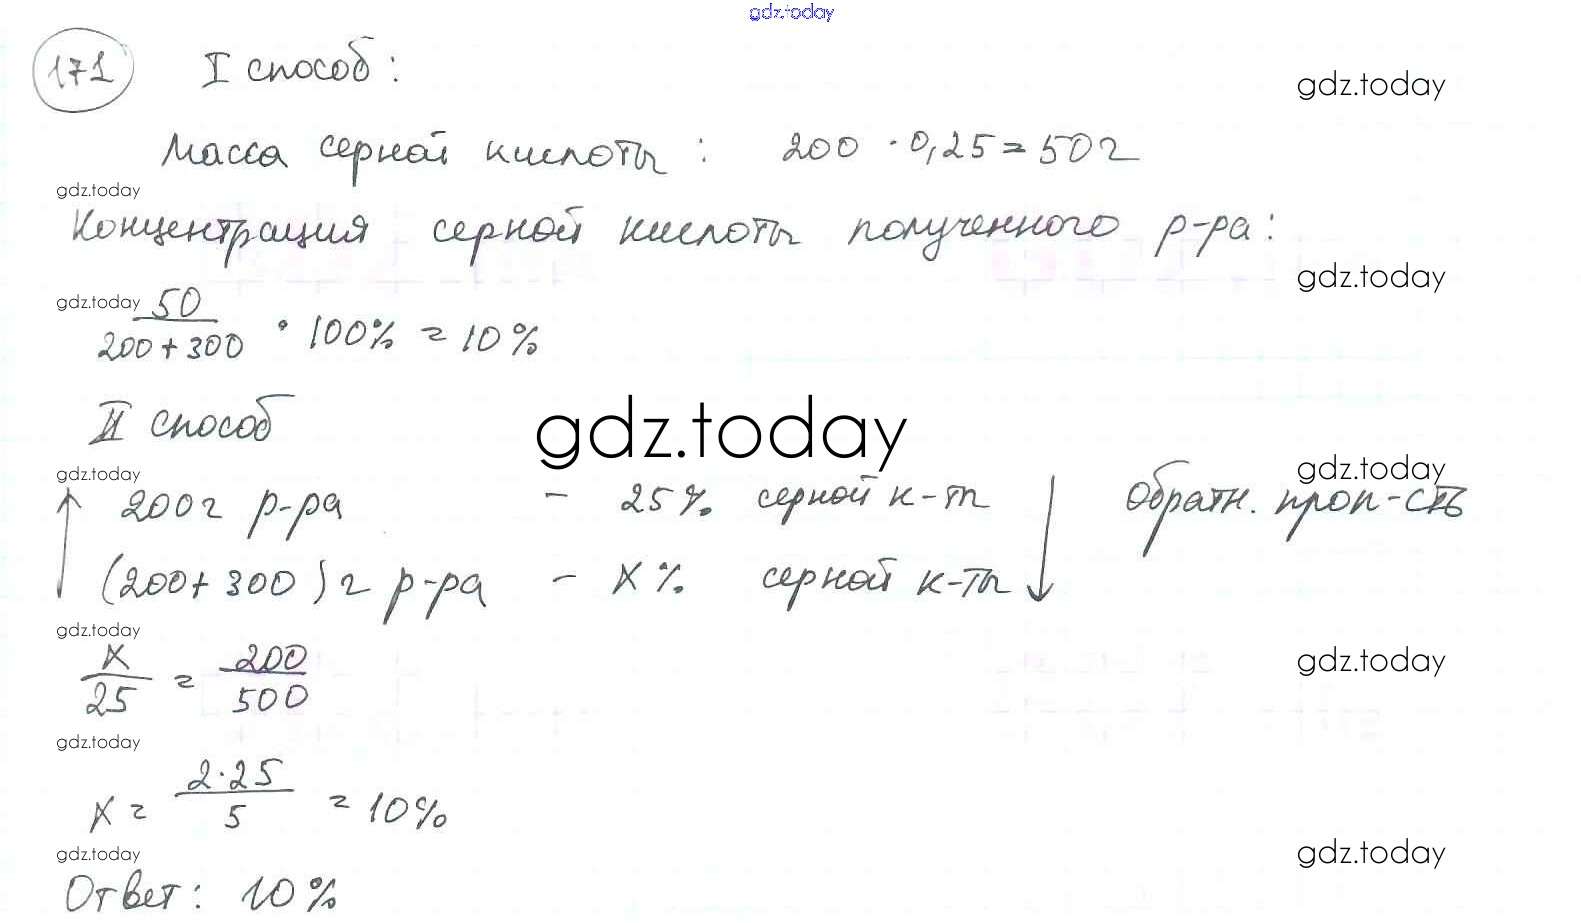 gdz.today
171 I способ:
gdz.today
Масса серной кислоты: 200 · 0,25 = 50 г
gdz.today
Концентрация серной кислоты полученного р-ра:
gdz.today
gdz.today
50
200+300 · 100% = 10%
II способ
gdz.today
gdz.today
gdz.today
200 г р-ра - 25% серной к-ты обратн. проп-сть
(200+300) г р-ра - x% серной к-ты
gdz.today
x/25 = 200/500
gdz.today
gdz.today
x = 2·25/5 = 10%
gdz.today
gdz.today
Ответ: 10%